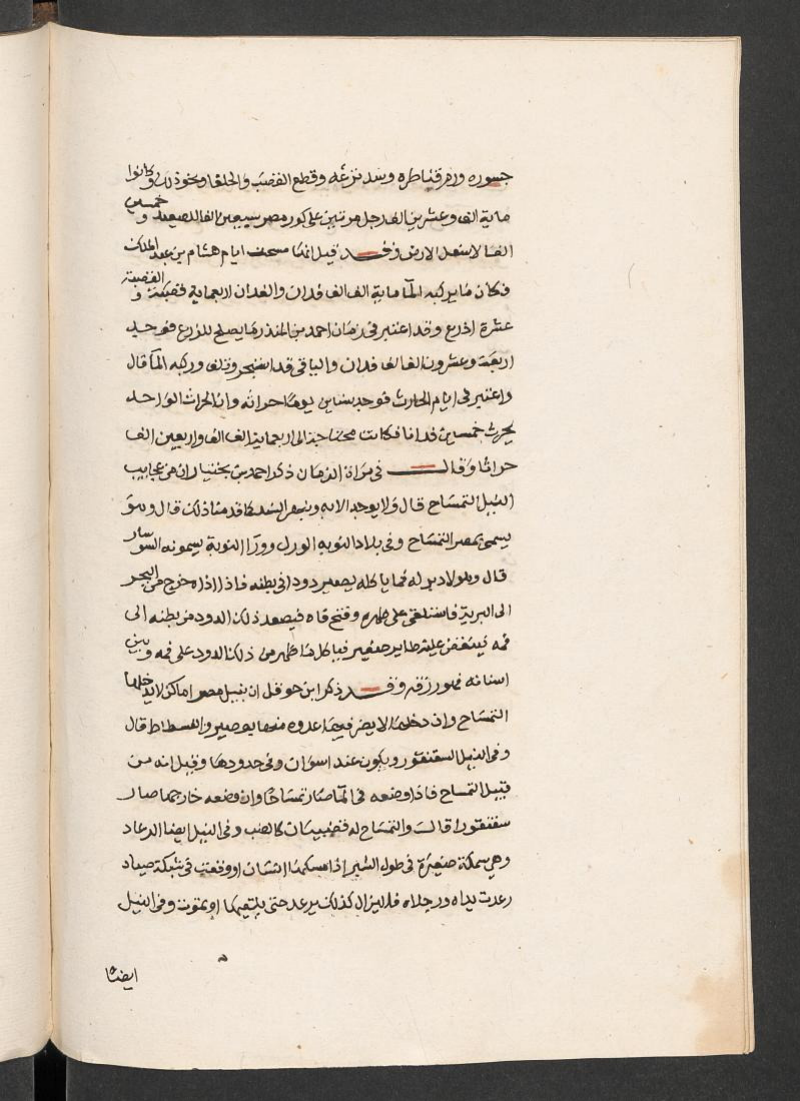 جسوره ورم قناطره وسد ترعه وقطع القصب والحلفا ونحو ذلك وكانوا
ماية الف وعشرين الف رجل مرتبين على كور مصر سبعين الفا للصعيد وخمسين
الفا لاسفل الارض وقد قيل انها مسحت ايام هشام بن عبد الملك
فكان ما يركبه الما ماية الف الف فدان والفدان اربعماية قصبة والقصبة
عشرة اذرع وقد اعتبر في زمان احمد بن المدبر ما يصلح للزرع فوجد
اربعة وعشرون الف الف فدان والباقي قد استبحر وتلف وركبه الما قال
واعتبر في ايام الحارث فوجد ستين يوما حراثه وان الحراث الواحد
يحرث خمسين فدانا فكانت محتاجة الى اربعماية الف الف واربعين الف
حراثا وقال في مراة الزمان ذكر احمد بن بختيار ان من عجايب
النيل التمساح قال ولا يوجد الا به وبنهر السند كما قدمنا ذلك قال وهو
يسمى بمصر التمساح وفي بلاد النوبه الورل وورا النوبة يسمونه السوسمار
قال وهو لا دبر له فما ياكله يصير دودا في بطنه فاذا اذاه خرج من البحر
الى البرية فاستلقى على ظهره وفتح فاه فيصعد ذلك الدود من بطنه الى
فمه فينقض عليه طاير صغير فياكل ما ظهر من ذلك الدود على فمه وبين
اسنانه فهو رزقه وقد ذكر ابن حوقل ان بنيل مصر اماكن لا يدخلها
التمساح وان دخلها لا يضر فيها عدوه منها بوصير والفسطاط قال
وفي النيل السقنقور ويكون عند اسوان وفي حدودها وقيل انه من
قبيل التمساح فاذا وضعه في الما صار تمساحا وان وضعه خارجها صار
سقنقورا قالت والتمساح له قضيبان كالضب وفي النيل ايضا الرعاد
وهي سمكة صغيرة في طول الشبر اذا مسكها انسان او وقعت في شبكة صياد
رعدت يداه ورجلاه فلا يزال كذلك يرعد حتى يلقيها او تموت وفي النيل
ايضا